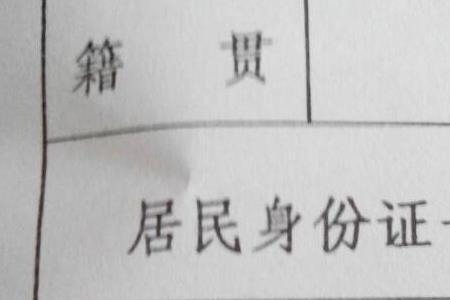 籍贯
居民身份证